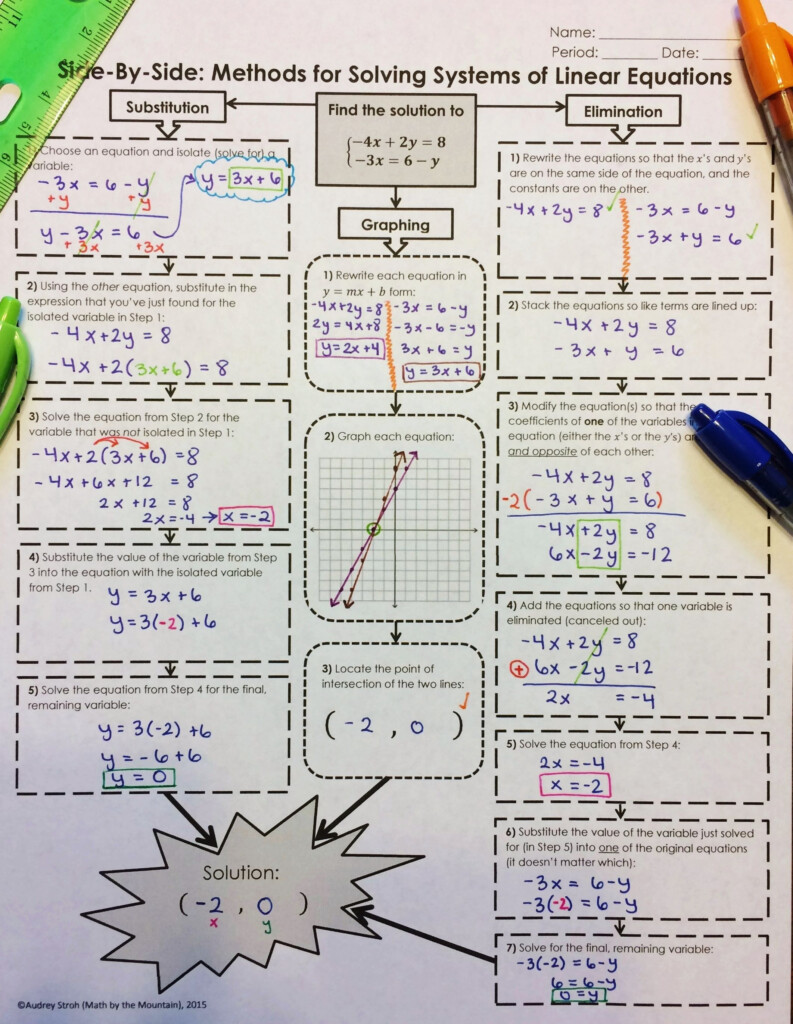 Name:
Period: Date:
Side-By-Side: Methods for Solving Systems of Linear Equations
Substitution
Choose an equation and isolate (solve for) a
variable:
-3x = 6 - y
+y +y
y - 3x = 6
+3x +3x
y = 3x + 6
2) Using the other equation, substitute in the
expression that you've just found for the
isolated variable in Step 1:
-4x + 2y = 8
-4x + 2(3x+6) = 8
3) Solve the equation from Step 2 for the
variable that was not isolated in Step 1:
-4x + 2(3x+6) = 8
-4x + 6x + 12 = 8
2x + 12 = 8
2x = -4 → x = -2
4) Substitute the value of the variable from Step
3 into the equation with the isolated variable
from Step 1.
y = 3x + 6
y = 3(-2) + 6
5) Solve the equation from Step 4 for the final,
remaining variable:
y = 3(-2) + 6
y = -6 + 6
y = 0
Find the solution to
{-4x + 2y = 8
-3x = 6 - y
Graphing
1) Rewrite each equation in
y = mx + b form:
-4x + 2y = 8
2y = 4x + 8
y = 2x + 4
-3x = 6 - y
-3x - 6 = -y
3x + 6 = y
y = 3x + 6
2) Graph each equation:
3) Locate the point of
intersection of the two lines:
(-2, 0) ✓
Elimination
1) Rewrite the equations so that the x's and y's
are on the same side of the equation, and the
constants are on the other.
-4x + 2y = 8 ✓
-3x = 6 - y
-3x + y = 6 ✓
2) Stack the equations so like terms are lined up:
-4x + 2y = 8
-3x + y = 6
3) Modify the equation(s) so that the
coefficients of one of the variables
equation (either the x's or the y's)
and opposite of each other:
-4x + 2y = 8
-2(-3x + y = 6)
-4x + 2y = 8
6x - 2y = -12
4) Add the equations so that one variable is
eliminated (canceled out):
-4x + 2y = 8
+ 6x - 2y = -12
2x = -4
5) Solve the equation from Step 4:
2x = -4
x = -2
6) Substitute the value of the variable just solved
for (in Step 5) into one of the original equations
(it doesn't matter which):
-3x = 6 - y
-3(-2) = 6 - y
7) Solve for the final, remaining variable:
-3(-2) = 6 - y
6 = 6 - y
0 = y
Solution:
(-2, 0)
x y
©Audrey Stroh (Math by the Mountain), 2015